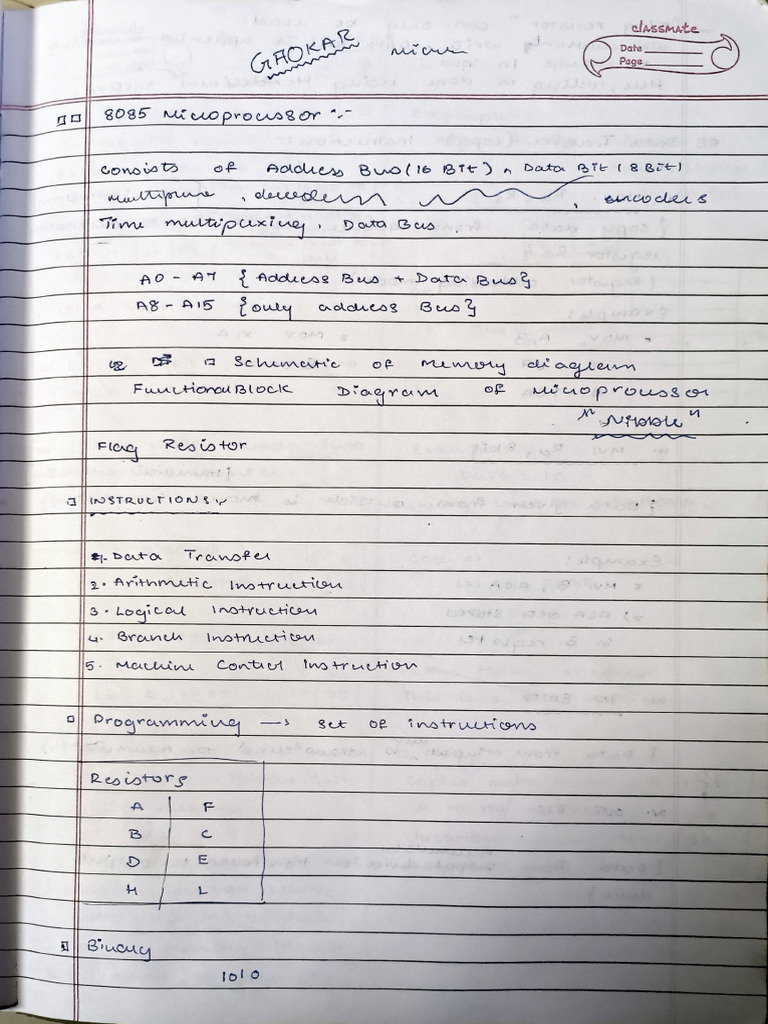 classmate
Date
Page
GAOKAR
8085 Microprocessor :-
consists of Address Bus (16 Bit), Data Bit (8 Bit)
, encoders
Time multiplexing, Data Bus.
A0 - A7 {Address Bus + Data Bus}
A8 - A15 {only address Bus}
Schematic of Memory diagram
Functional Block Diagram of Microprocessor
"Nibble"
Flag Resistor
INSTRUCTIONS :-
1. Data Transfer
2. Arithmetic Instruction
3. Logical Instruction
4. Branch Instruction
5. Machine Control Instruction
Programming → set of instructions
Resistors
A F
B C
D E
H L
Binary
1010